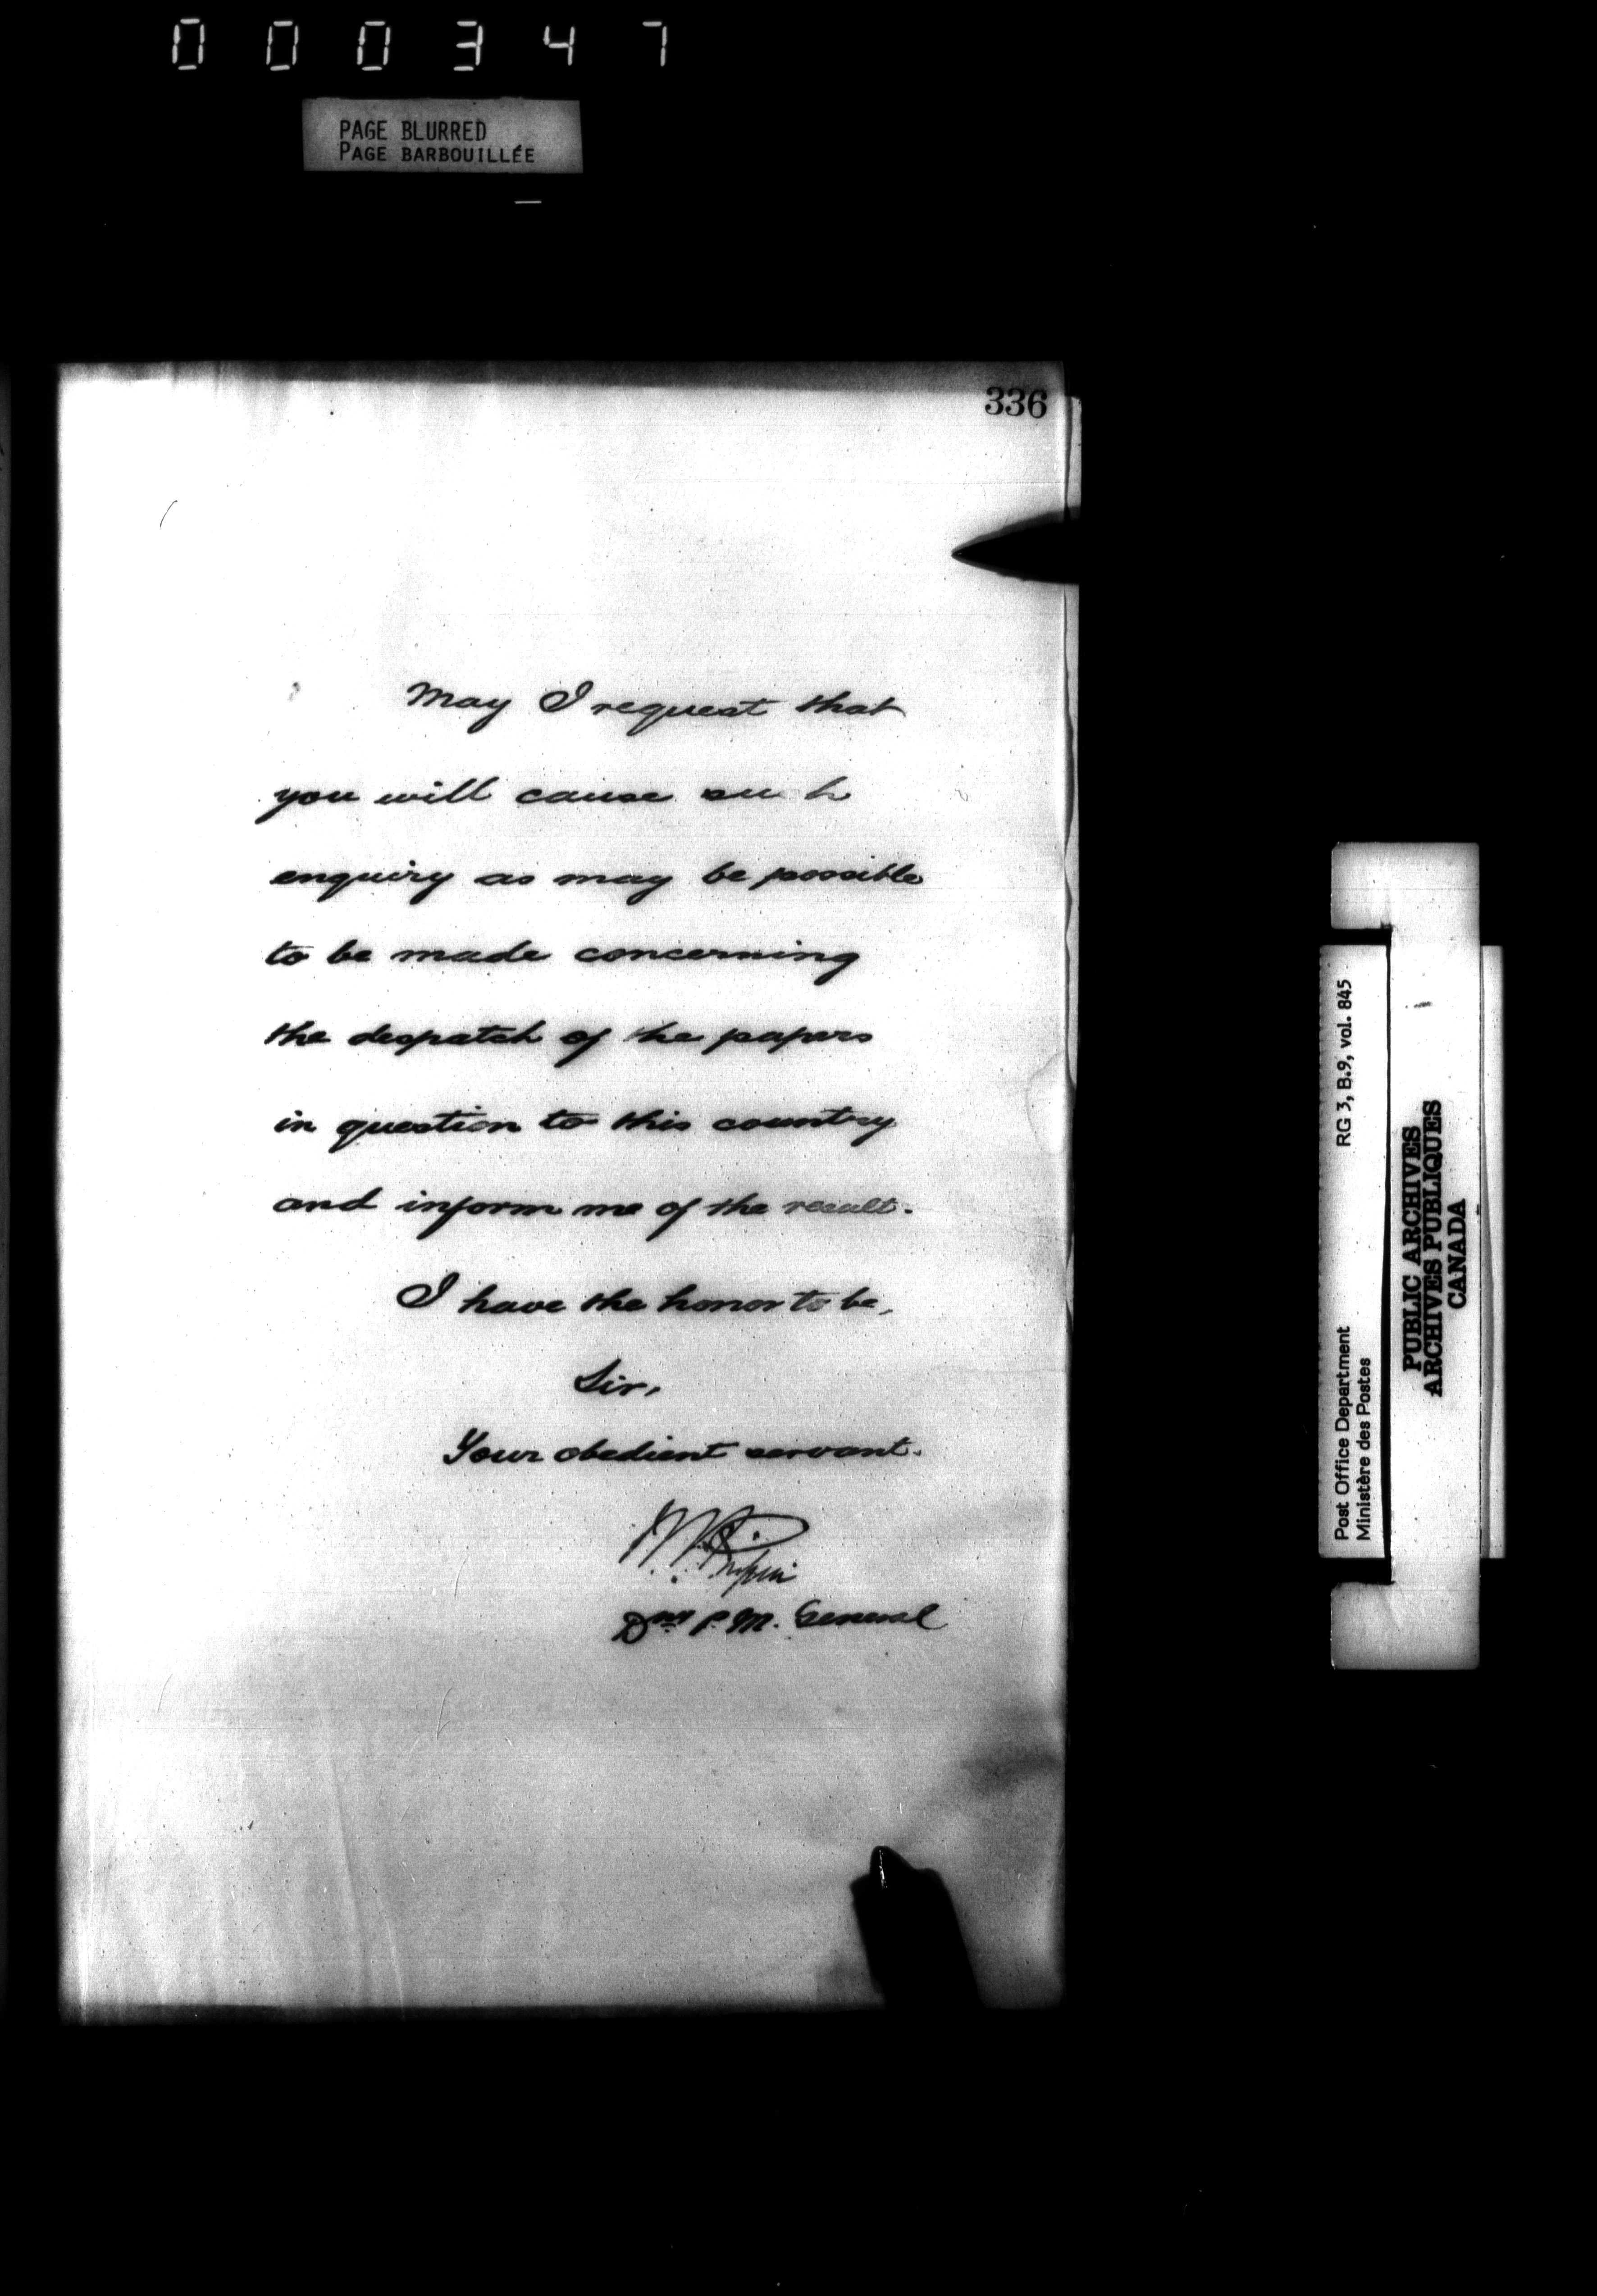 000347
PAGE BLURRED
PAGE BARBOUILLÉE
336
May I request that
you will cause such
enquiry as may be possible
to be made concerning
the despatch of the papers
in question to this country
and inform me of the result.
I have the honor to be,
Sir,
Your obedient servant.
P. M. General
Post Office Department RG 3, B.9, vol. 845
Ministère des Postes
PUBLIC ARCHIVES
ARCHIVES PUBLIQUES
CANADA